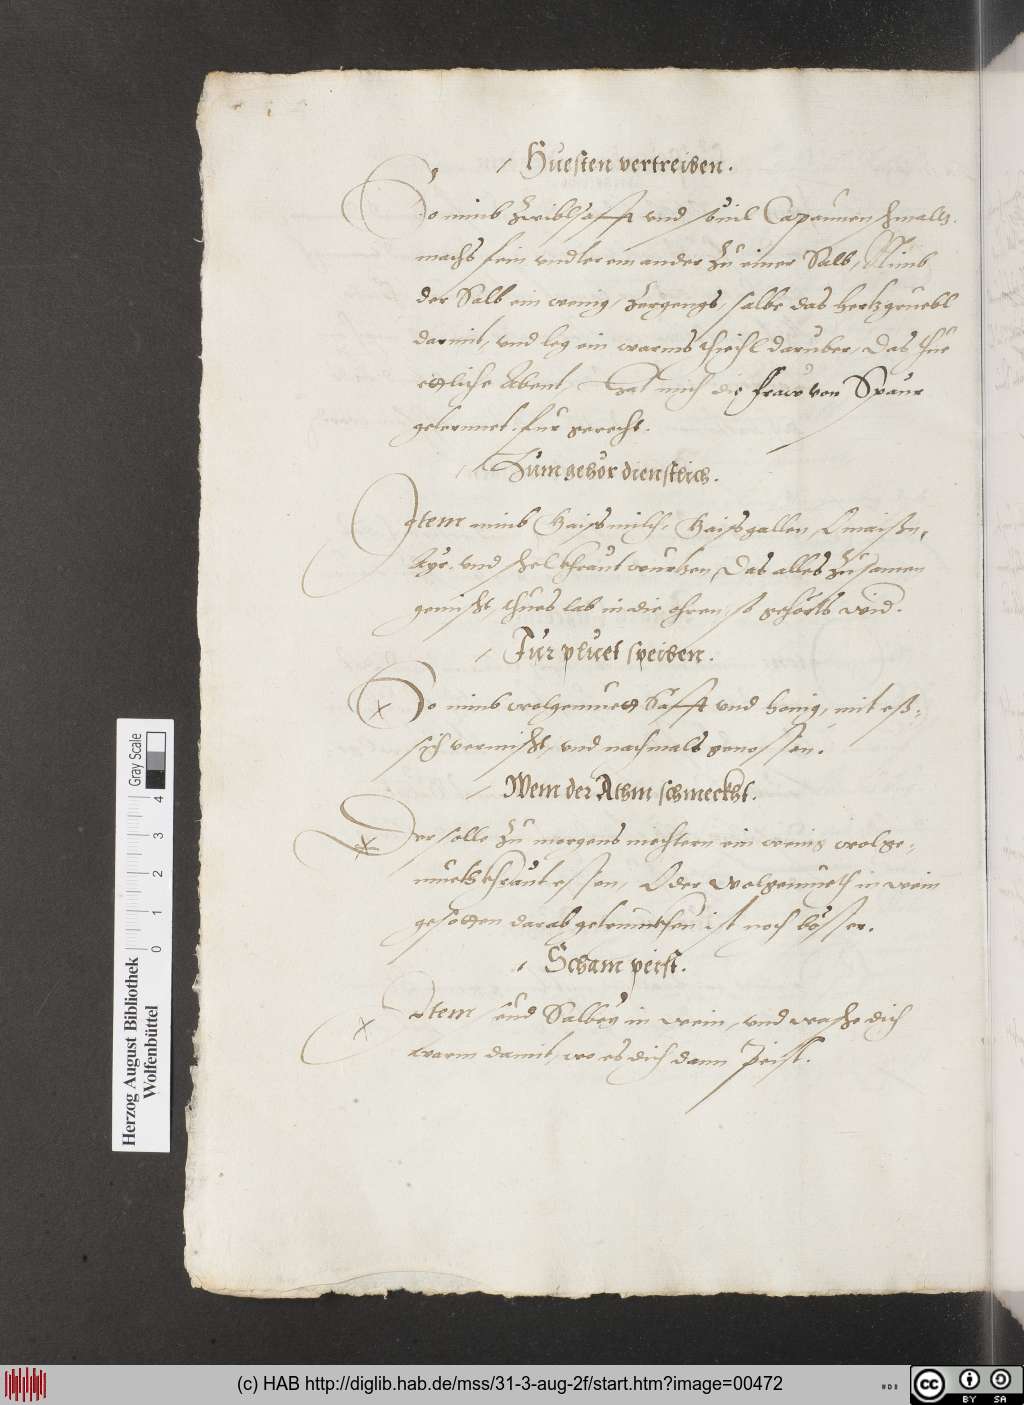 Huesten vertreiben.
So nimb Zwiblsafft und sovil Capaunen schmaltz.
machs fein undter einander zu einer Salb, Nimb
der Salb ein wenig, zergengs, salbe das hertzgruebl
darmit, und leg ein warms thiechl daruber, das thue
etzliche Abent, Hat mich die Fraw von Spaur
gelernnet. fur gerecht.
Zum gehör dienstlich.
Item nimb Gaissmilch, Gaissgallen, Omaissn,
Ayr. und schelkhraut wurtzen, Das alles zusamen
gemischt, thues lab in die ohren, so gehörts wid.
Fur pluet speiben.
So nimb wolgemuet Safft und honig, mit eß-
sich vermischt, und nachmals genossen.
Wem der Athm schmeckht.
Der solle zu morgens nüchtern ein wenig wolge-
muetkhraut essen, Oder wolgemueth in wein
gesotten darab getrunckhen ist noch bösser.
Scham peist.
Item seud Salbey in wein, und wasche dich
warm damit, wo es dich dann peist.
Herzog August Bibliothek
Wolfenbüttel
0 1 2 3 4
Gray Scale
(c) HAB http://diglib.hab.de/mss/31-3-aug-2f/start.htm?image=00472
HAB
cc
BY SA